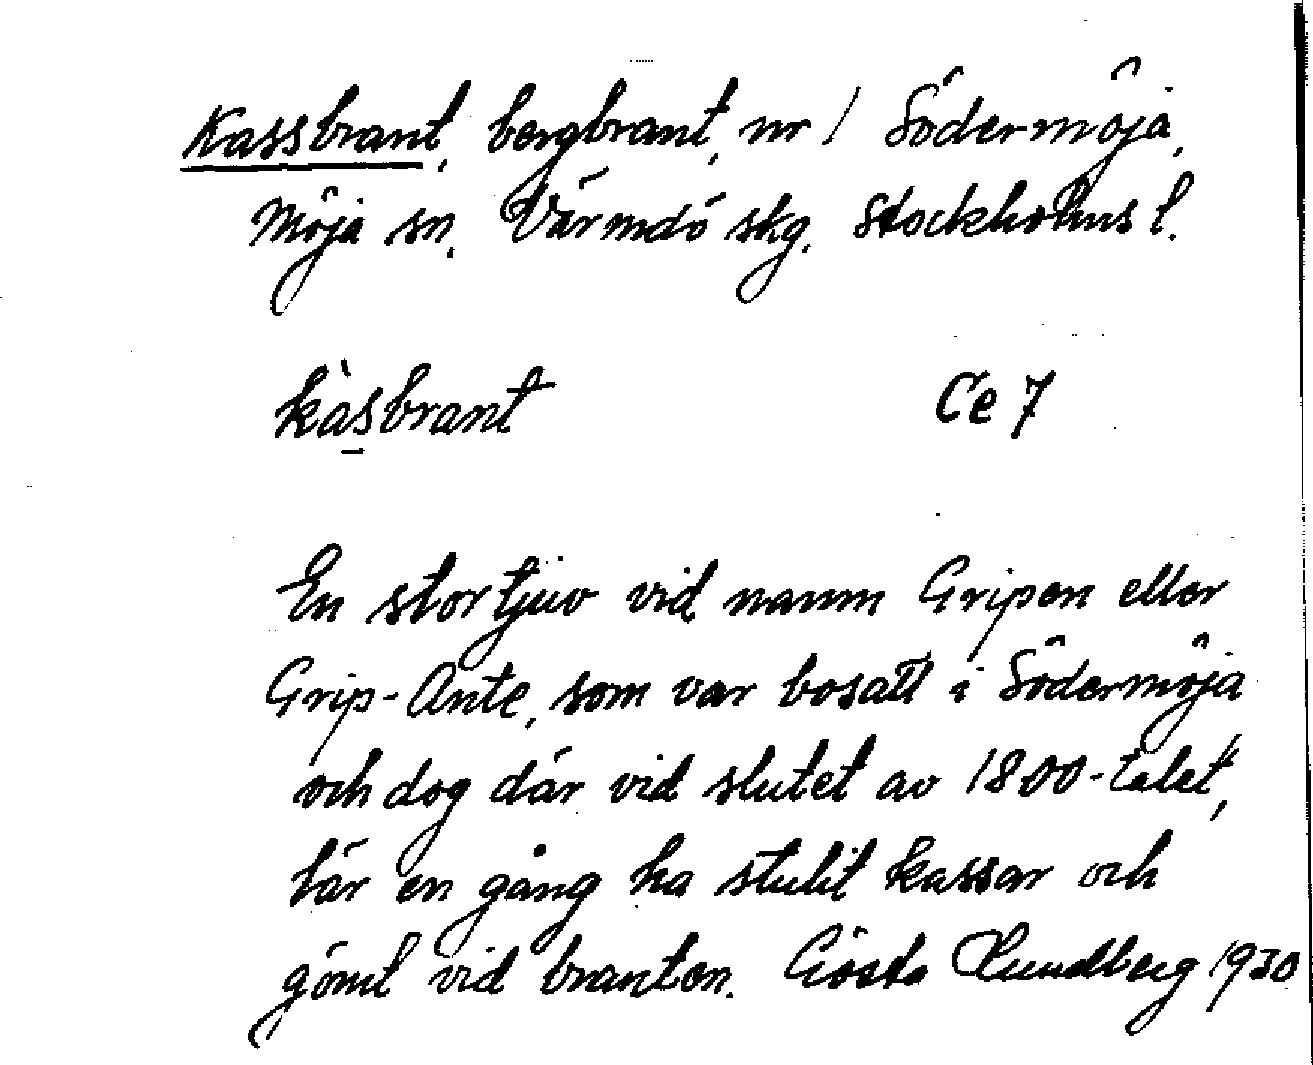 Kassbrant, bergbrant, nr 1 Södermöja,
Möja sn. Värmdö skg. Stockholms l.
kàsbrant Ce 7
En stortjuv vid namn Gripen eller
Grip-Ante, som var bosatt i Södermöja
och dog där vid slutet av 1800-talet,
lär en gång ha stulit kassar och
gömt vid branten. Gösta Lundberg 1930